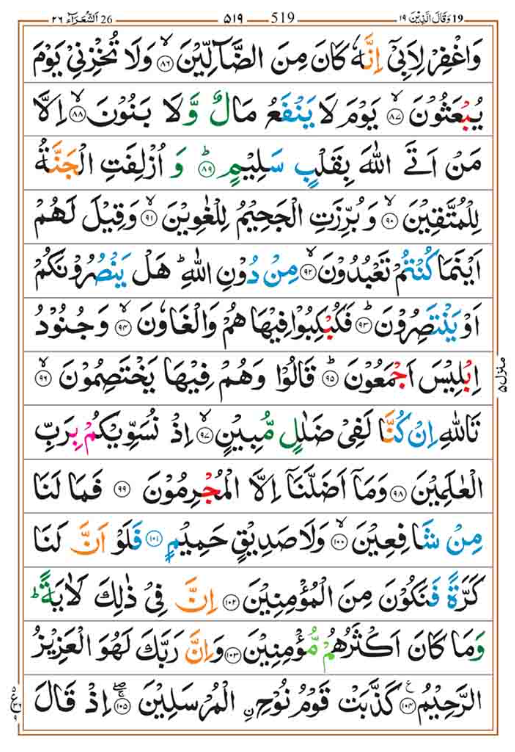 ١٩ وَقَالَ الَّذِيْنَ 19 ٥١٩ 519 ٢٦ اَلشُّعَرَآء 26
وَاغْفِرْ لِاَبِىْۤ اِنَّهٗ كَانَ مِنَ الضَّآلِّيْنَ ۙ‏﴿۸۶﴾ وَلَا تُخْزِنِىْ يَوْمَ
يُبْعَثُوْنَۙ‏ ﴿۸۷﴾ يَوْمَ لَا يَنْفَعُ مَالٌ وَّلَا بَنُوْنَۙ‏ ﴿۸۸﴾ اِلَّا
مَنْ اَتَى اللّٰهَ بِقَلْبٍ سَلِيْمٍؕ‏ ﴿۸۹﴾ وَ اُزْلِفَتِ الْجَنَّةُ
لِلْمُتَّقِيْنَۙ‏ ﴿۹۰﴾ وَ بُرِّزَتِ الْجَحِيْمُ لِلْغٰوِيْنَۙ‏ ﴿۹۱﴾ وَقِيْلَ لَهُمْ
اَيْنَمَا كُنْتُمْ تَعْبُدُوْنَۙ‏ ﴿۹۲﴾ مِنْ دُوْنِ اللّٰهِؕ هَلْ يَنْصُرُوْنَكُمْ
اَوْ يَنْتَصِرُوْنَؕ‏ ﴿۹۳﴾ فَكُبْكِبُوْا فِيْهَا هُمْ وَالْغَاوٗنَۙ‏ ﴿۹۴﴾ وَجُنُوْدُ
اِبْلِيْسَ اَجْمَعُوْنَؕ‏ ﴿۹۵﴾ قَالُوْا وَهُمْ فِيْهَا يَخْتَصِمُوْنَۙ‏ ﴿۹۶﴾
تَاللّٰهِ اِنْ كُنَّا لَفِىْ ضَلٰلٍ مُّبِيْنٍۙ‏ ﴿۹۷﴾ اِذْ نُسَوِّيْكُمْ بِرَبِّ
الْعٰلَمِيْنَ‏ ﴿۹۸﴾ وَمَاۤ اَضَلَّنَاۤ اِلَّا الْمُجْرِمُوْنَ‏ ﴿۹۹﴾ فَمَا لَنَا
مِنْ شَافِعِيْنَۙ‏ ﴿۱۰۰﴾ وَلَا صَدِيْقٍ حَمِيْمٍ‏ ﴿۱۰۱﴾ فَلَوْ اَنَّ لَنَا
كَرَّةً فَنَكُوْنَ مِنَ الْمُؤْمِنِيْنَ‏ ﴿۱۰۲﴾ اِنَّ فِىْ ذٰلِكَ لَاٰيَةً ؕ
وَمَا كَانَ اَكْثَرُهُمْ مُّؤْمِنِيْنَ‏ ﴿۱۰۳﴾ وَاِنَّ رَبَّكَ لَهُوَ الْعَزِيْزُ
الرَّحِيْمُ‏ ﴿۱۰۴﴾ كَذَّبَتْ قَوْمُ نُوْحِ ۨ الْمُرْسَلِيْنَ ۖ ۚ‏ ﴿۱۰۵﴾ اِذْ قَالَ
منزل ۵